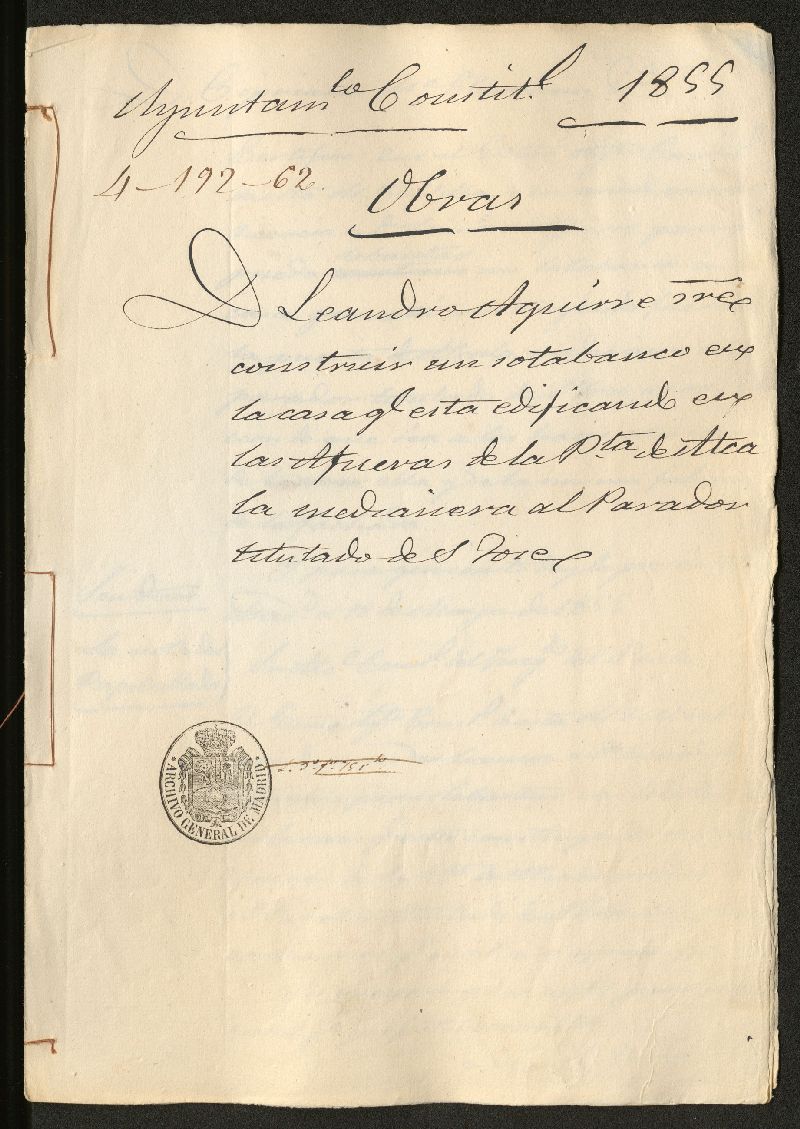 Ayuntam.to Constit.l 1855
4-192-62.
Obras
D Leandro Aguirre sre
construir un sotabanco en
la casa q.e esta edificando en
las Afueras de la P.ta de Alca
la medianera al Parador
titulado de S Jose
ARCHIVO GENERAL DE MADRID